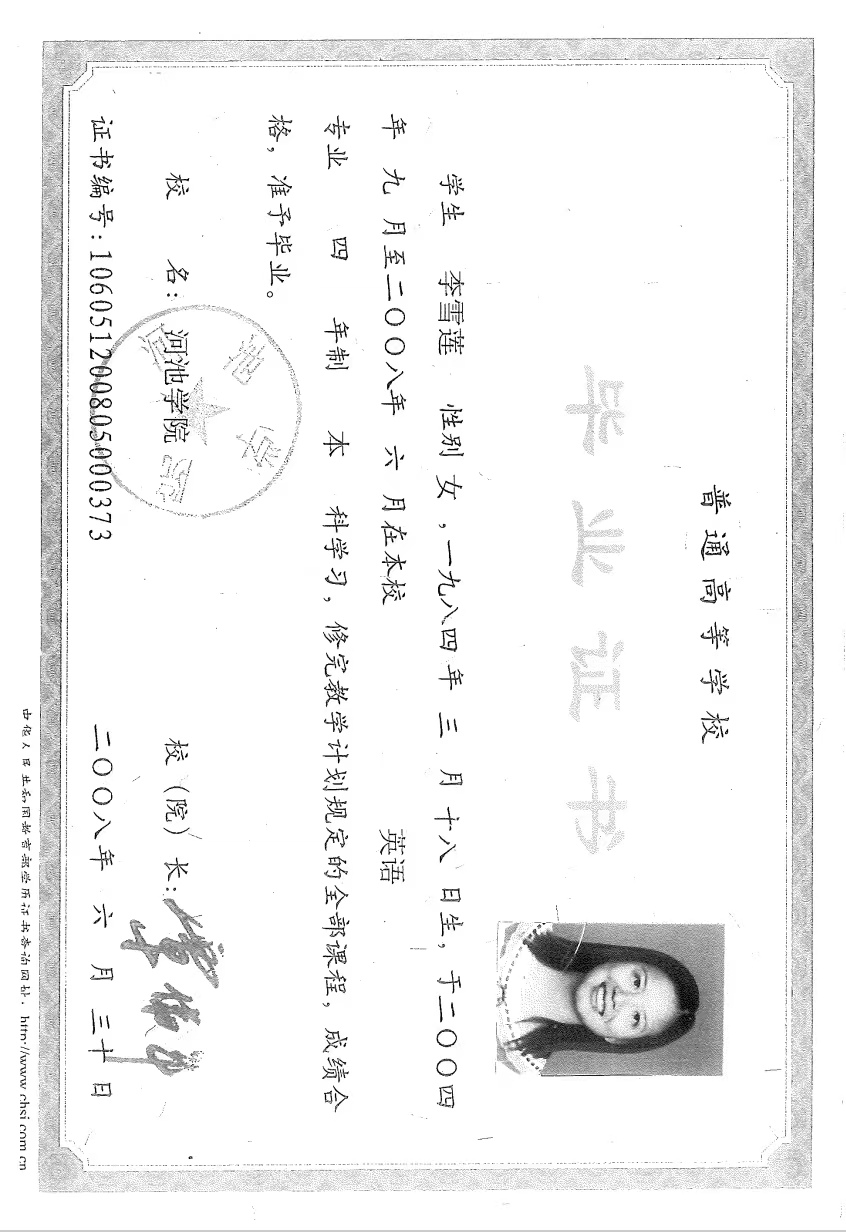 普通高等学校
毕业证书
学生 李雪莲 性别 女，一九八四年 三 月 十八 日生，于二〇〇四
年 九 月至二〇〇八年 六 月在本校 英语
专业 四 年制 本 科学习，修完教学计划规定的全部课程，成绩合
格，准予毕业。
校 名：河池学院 校（院）长：
证书编号：106051200805000373 二〇〇八年 六 月 三十 日
中华人民共和国教育部学历证书查询网址：http://www.chsi.com.cn